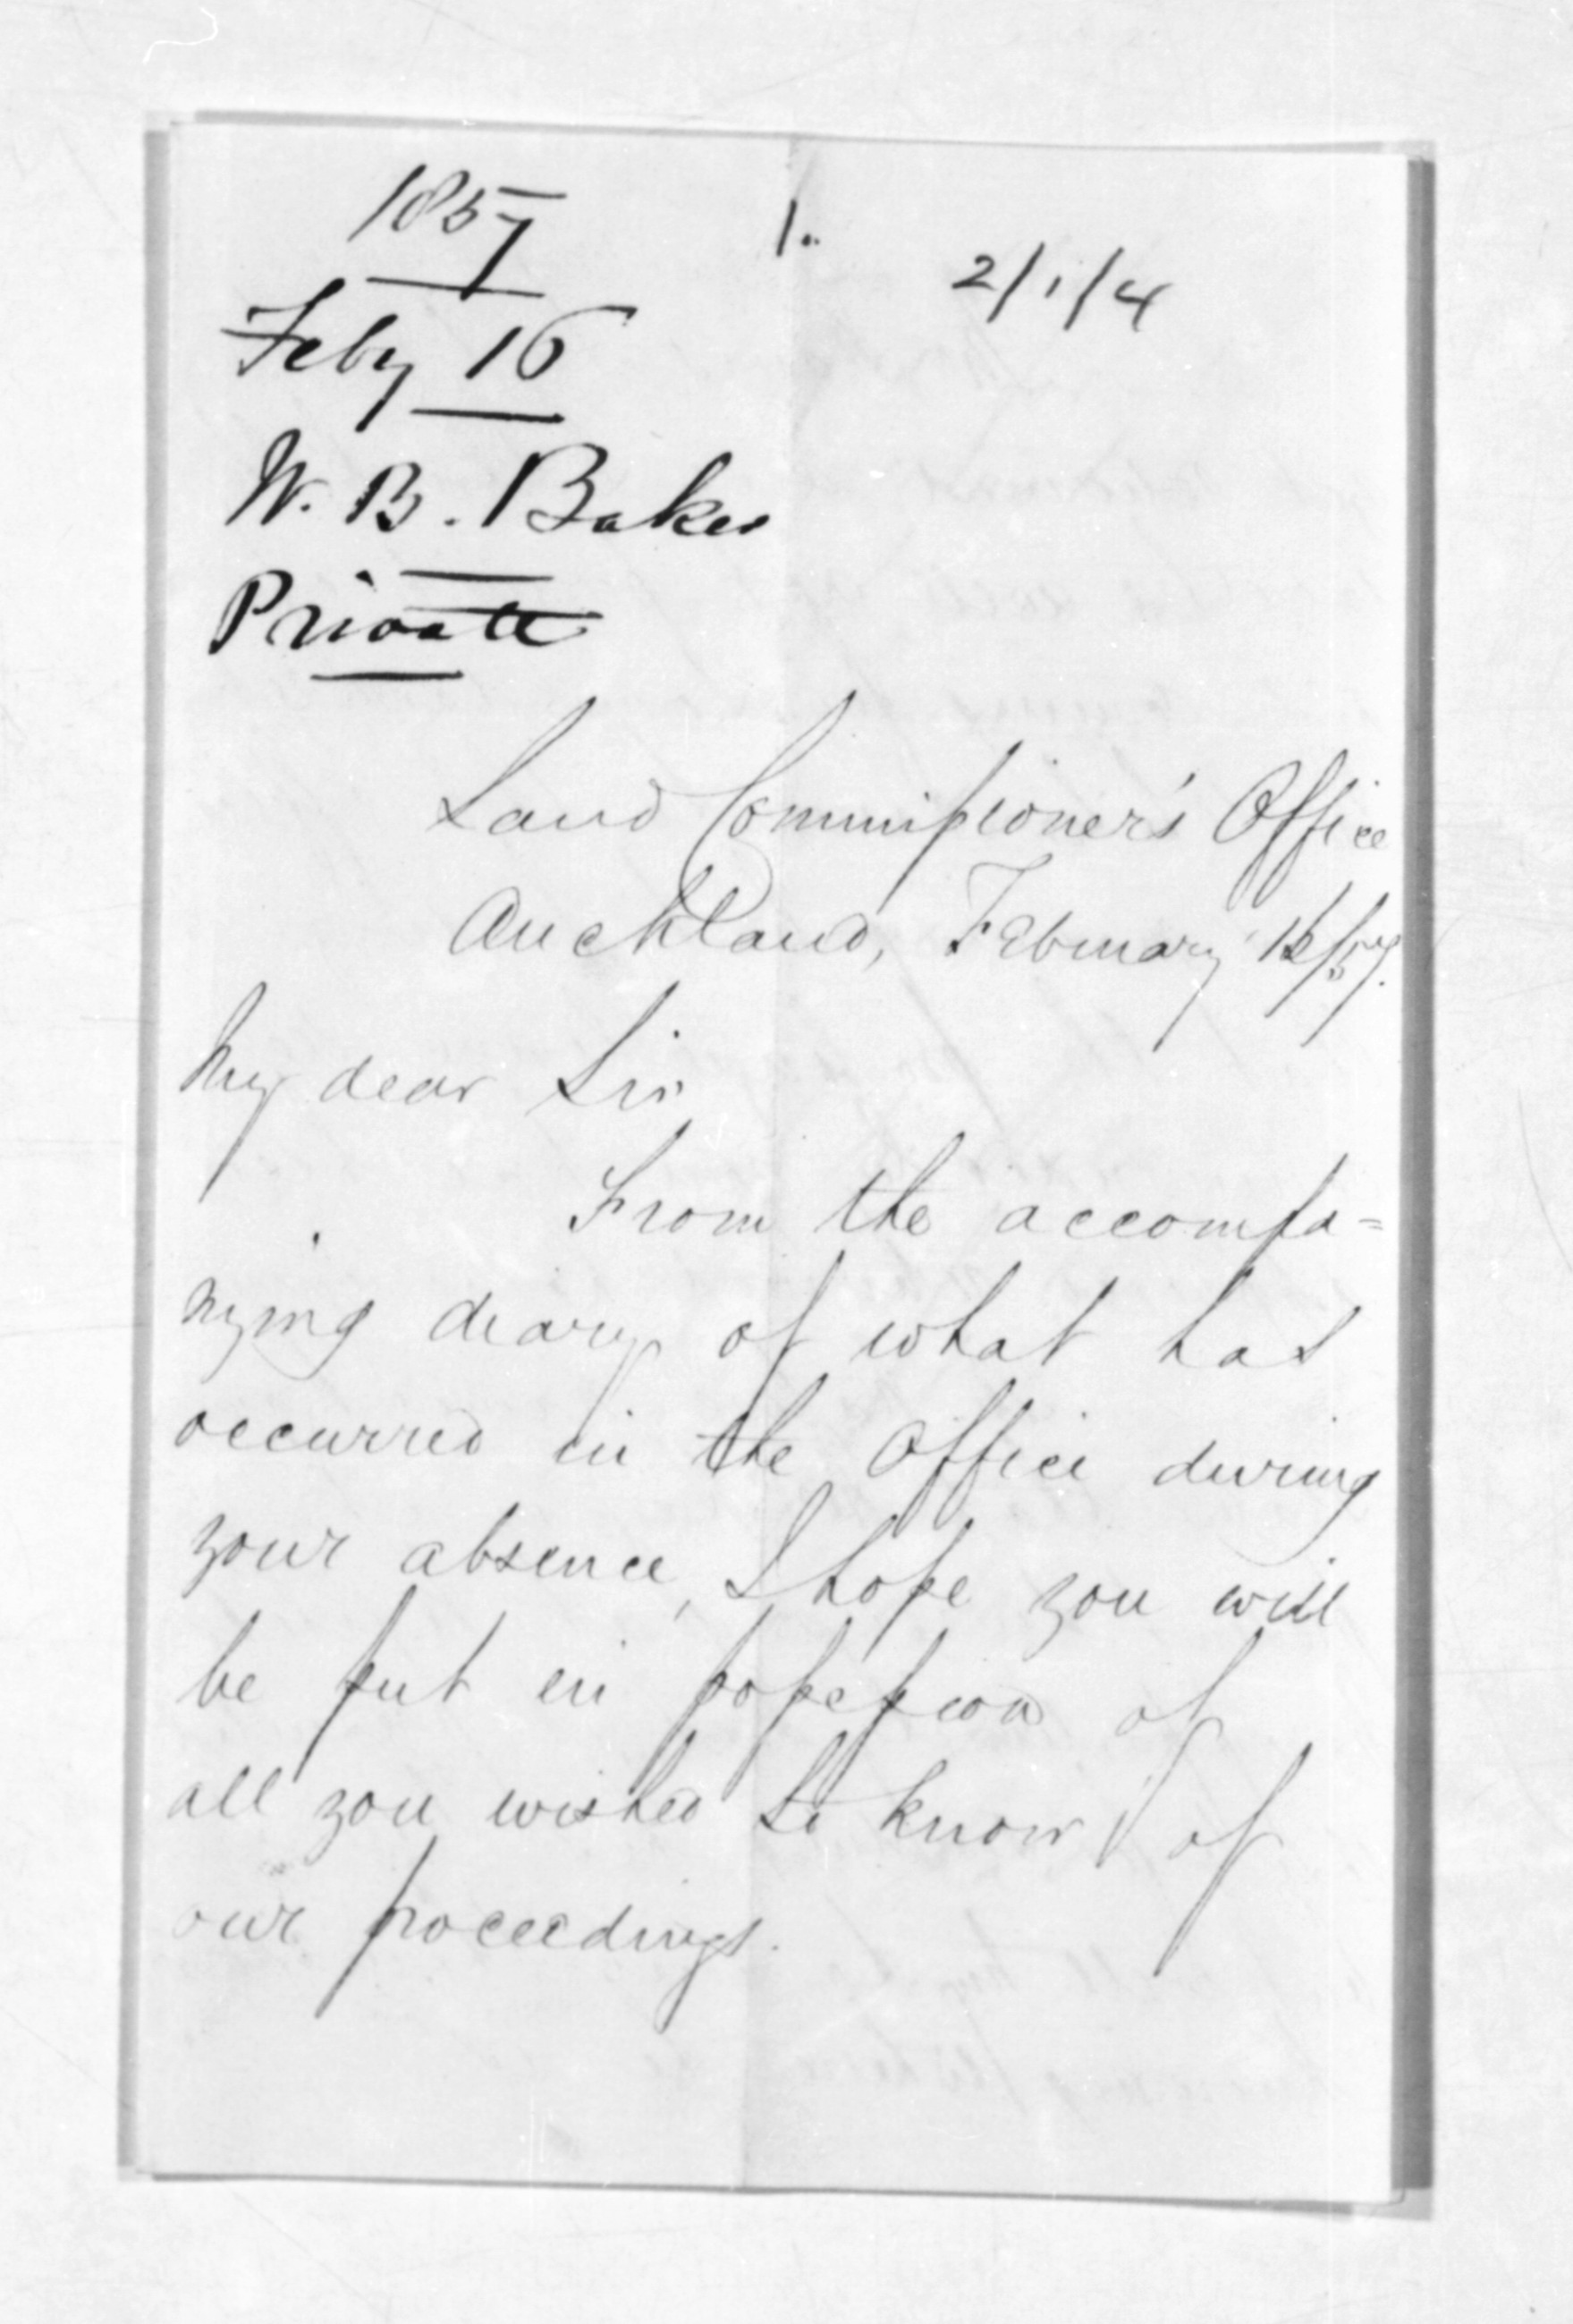 1857
1.
2/1/4
Feby 16
W. B. Baker
Private
Land Commissioner's Office
Auckland, February 16/57.
My dear Sir
From the accompa=
nying diary of what has
occurred in the Office during
your absence, I hope you will
be put in possession of
all you wished to know of
our proceedings.